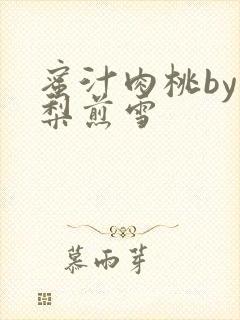 蜜汁肉桃by
梨煎雪
慕雨芽